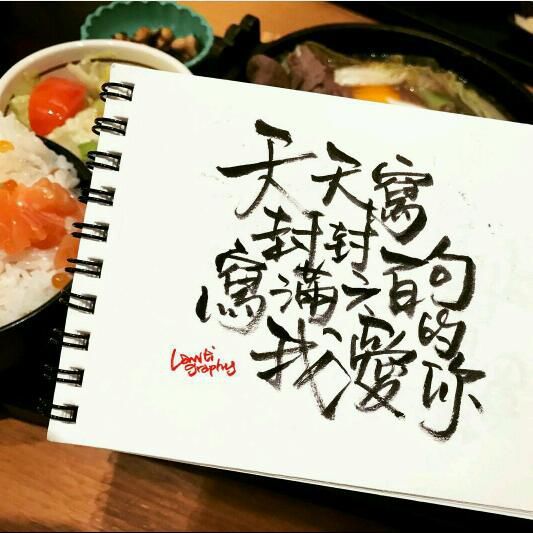 天天寫
封封
寫滿六百句的
我愛你